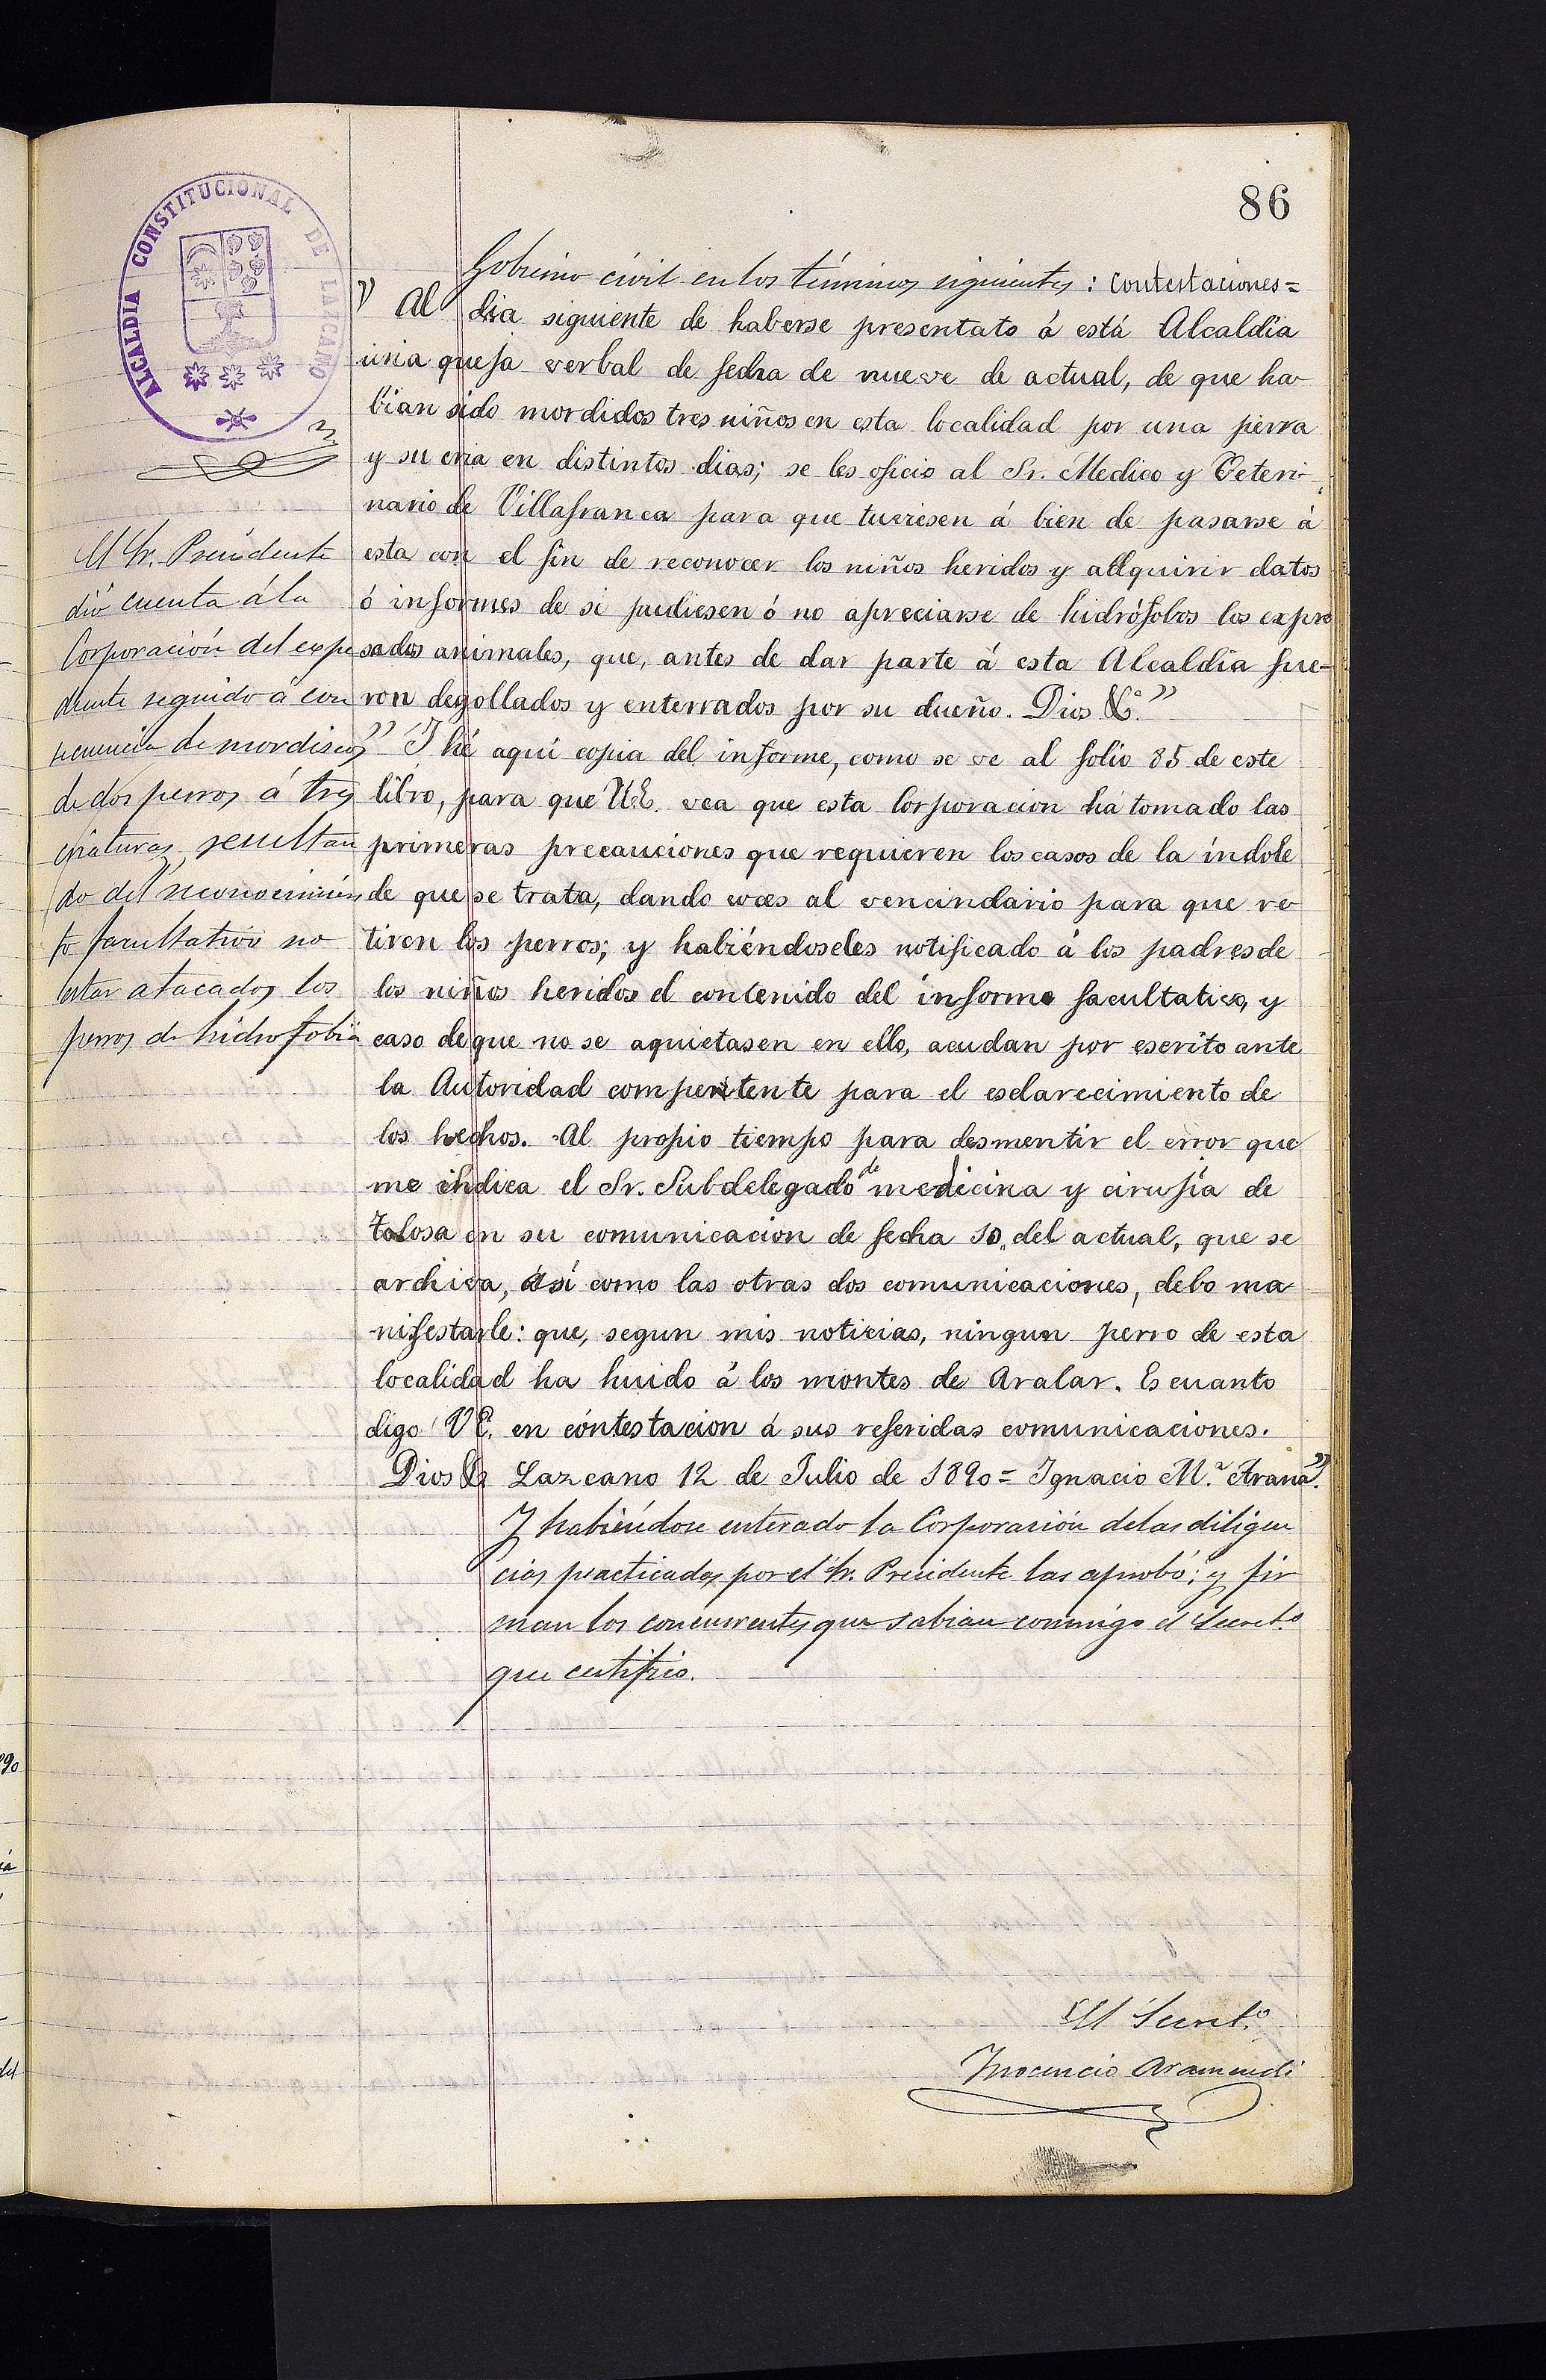 86
ALCALDIA CONSTITUCIONAL DE LAZCANO
Gobierno civil en los términos siguientes: Contestaciones=
" Al dia siguiente de haberse presentato á está Alcaldia
una queja verbal de fecha de nueve de actual, de que ha-
bian sido mordidos tres niños en esta localidad por una perra
y su cria en distintos dias; se les oficio al Sr. Medico y Veteri-
nario de Villafranca para que tuviesen á bien de pasarse á
esta con el fin de reconocer los niños heridos y allquirir datos
ó informes de si pudiesen ó no apreciarse de hidrófobos los expre
sados animales, que, antes de dar parte á esta Alcaldia fue-
ron degollados y enterrados por su dueño. Dios &ª."
" I hé aquí copia del informe, como se ve al folio 85 de este
libro, para que V.E. vea que esta Corporacion há tomado las
primeras precauciones que requieren los casos de la índole
de que se trata, dando voces al vencindario para que re-
tiren los perros; y habiéndoseles notificado á los padres de
los niños heridos el contenido del informe facultativo, y
caso de que no se aquietasen en ello, acudan por escrito ante
la Autoridad compentente para el esclarecimiento de
los hechos. Al propio tiempo para desmentir el error que
me indica el Sr. Subdelegado de medicina y cirujía de
Tolosa en su comunicacion de fecha 10 del actual, que se
archiva, así como las otras dos comunicaciones, debo ma-
nifestarle: que, segun mis noticias, ningun perro de esta
localidad ha huido á los montes de Aralar. Es cuanto
digo V.E. en contestacion á sus referidas comunicaciones.
Dios &ª Lazcano 12 de Julio de 1890= Ignacio M.ª Arana".
Y habiéndose enterado la Corporación de las diligen
cias practicadas por el Sr. Presidente las aprobó: y fir
man los concurrentes que sabian conmigo el Secret.º
que certifico.
El Sr. Presidente
dió cuenta á la
Corporación del expe
diente seguido á con
secuencia de mordiscos
de dos perros á tres
criaturas, resultan
do del reconocimien
to facultativo no
estar atacados los
perros de hidrofobia
El Secret.º
Inocencio Aramendi